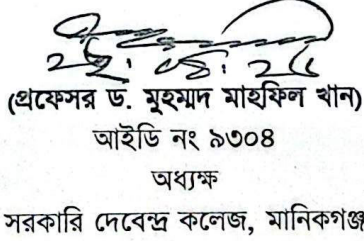 (প্রফেসর ড. মুহম্মদ মাহফিল খান)
আইডি নং ৯৩০৪
অধ্যক্ষ
সরকারি দেবেন্দ্র কলেজ, মানিকগঞ্জ